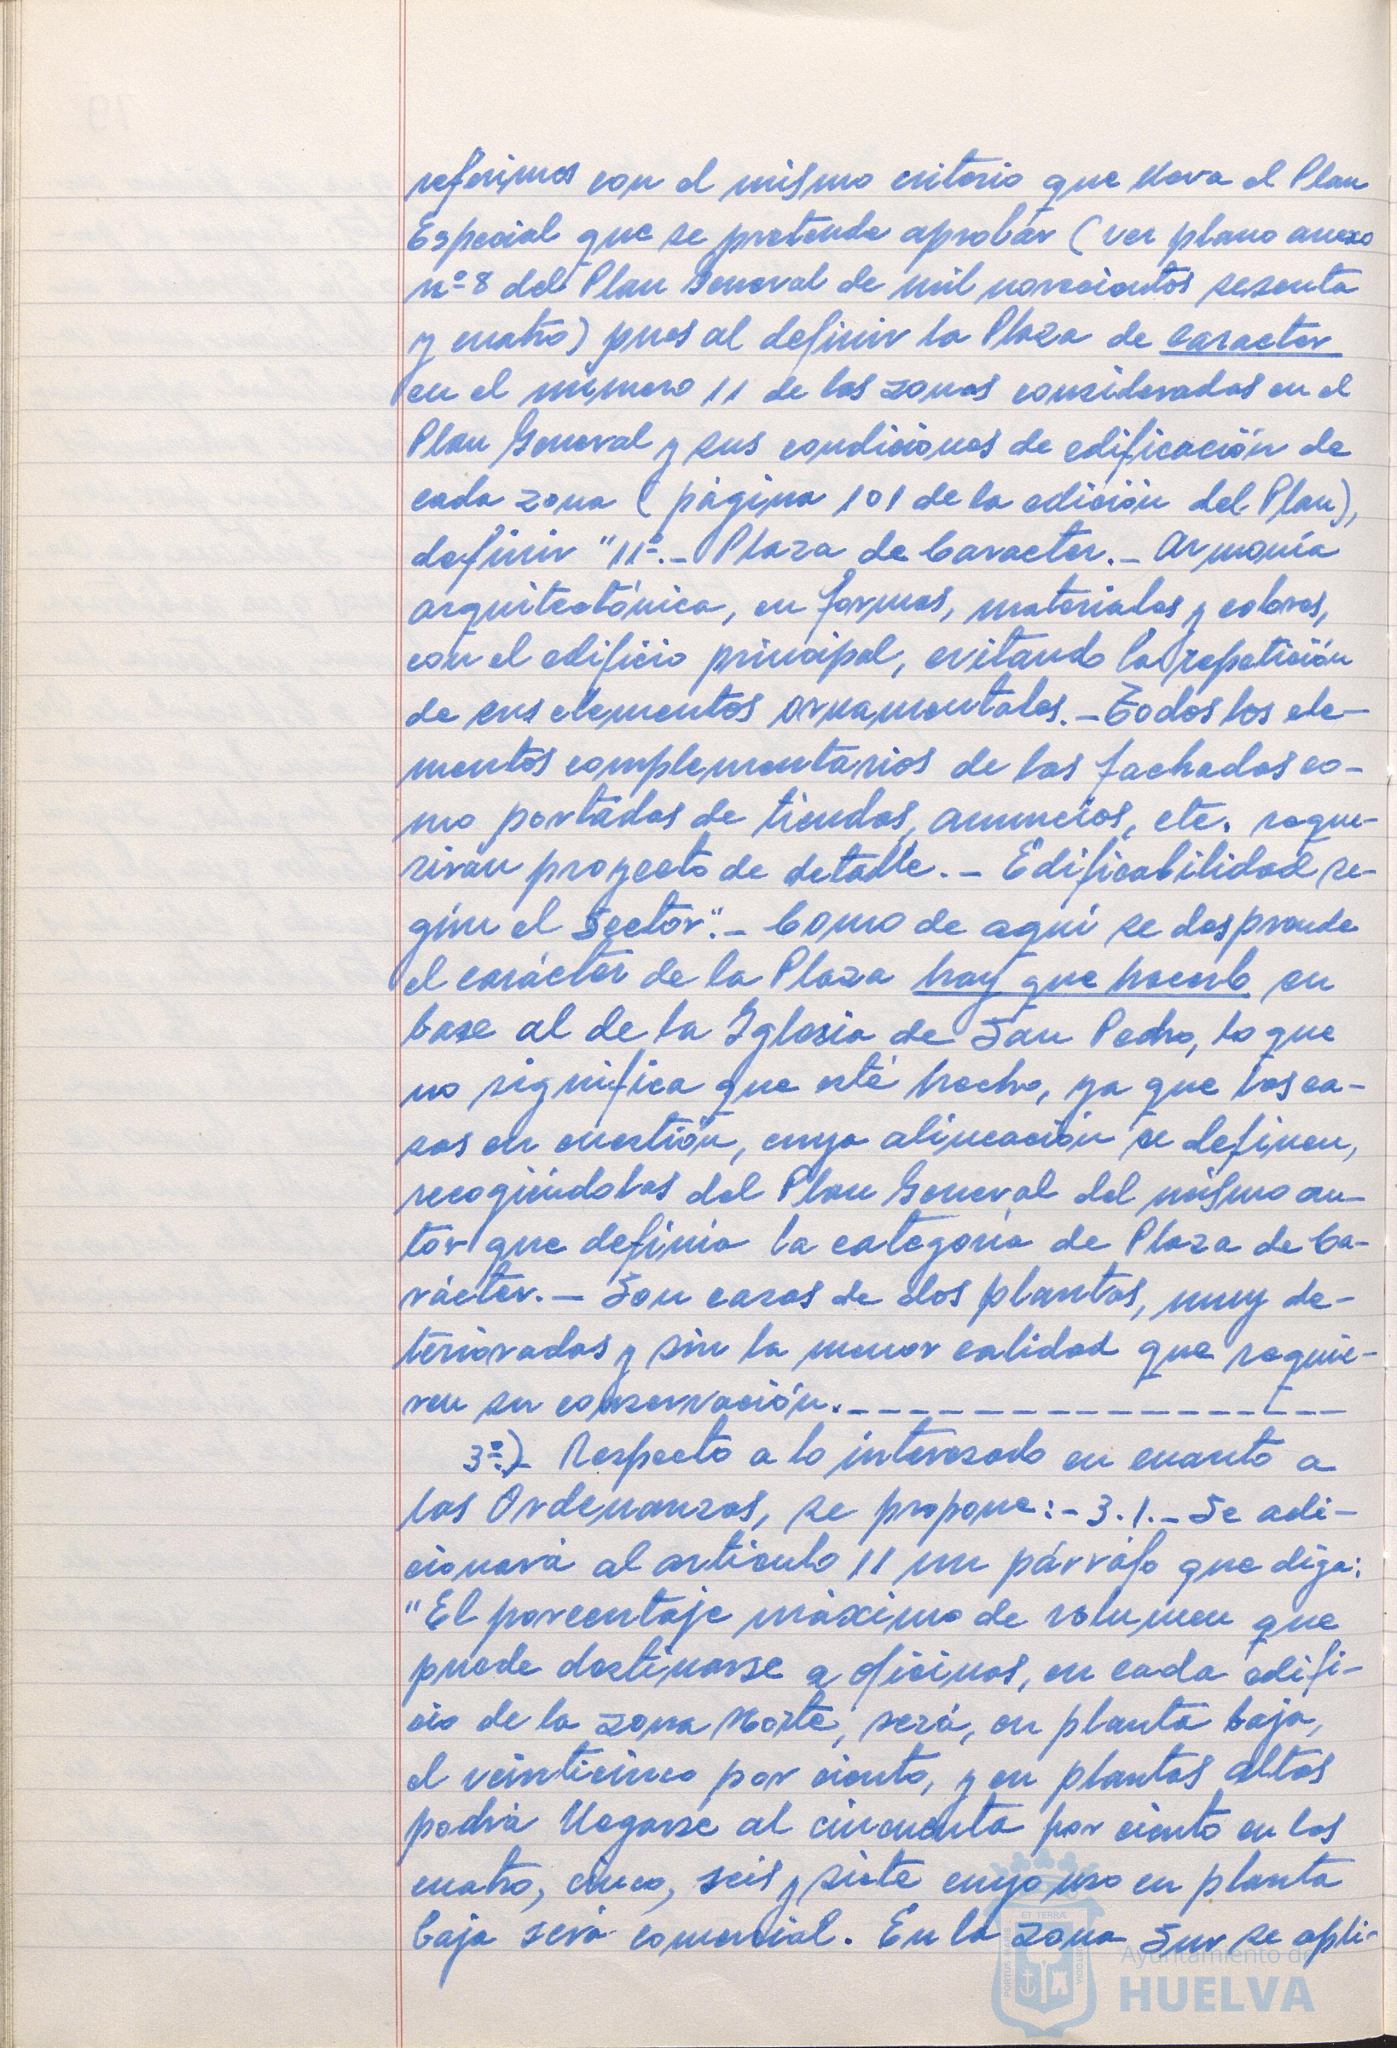 referimos con el mismo criterio que lleva el Plan
Especial que se pretende aprobar (ver plano anexo
nº 8 del Plan General de mil novecientos sesenta
y cuatro) pues al definir la Plaza de caracter
en el número 11 de las zonas consideradas en el
Plan General y sus condiciones de edificación de
cada zona (página 101 de la edición del Plan),
definir "11º.- Plaza de Caracter.- Armonía
arquitectónica, en formas, materiales y colores,
con el edificio principal, evitando la repetición
de sus elementos ornamentales.- Todos los ele-
mentos complementarios de las fachadas co-
mo portadas de tiendas, anuncios, etc. reque-
rirán proyecto de detalle.- Edificabilidad se-
gún el Sector".- Como de aquí se desprende
el carácter de la Plaza hay que hacerlo en
base al de la Iglesia de San Pedro, lo que
no significa que esté hecho, ya que las ca-
sas en cuestión, cuya alineación se definen,
recogiéndolas del Plan General del mismo au-
tor que definía la categoría de Plaza de Ca-
rácter.- Son casas de dos plantas, muy de-
terioradas y sin la menor calidad que requie-
ren su conservación.- - - - - - - - - - - - - - - - - -
3º.)- Respecto a lo interesado en cuanto a
las Ordenanzas, se propone:- 3.1.- Se adi-
cionará al artículo 11 un párrafo que diga:
"El porcentaje máximo de volumen que
puede destinarse a oficinas, en cada edifi-
cio de la zona Norte, será, en planta baja,
el veinticinco por ciento, y en plantas altas
podrá llegarse al cincuenta por ciento en las
cuatro, cinco, seis y siete cuyo uso en planta
baja será comercial. En la zona Sur se apli-
PORTUS MARIS
ET TERRAE
CUSTODIA
Ayuntamiento de
HUELVA